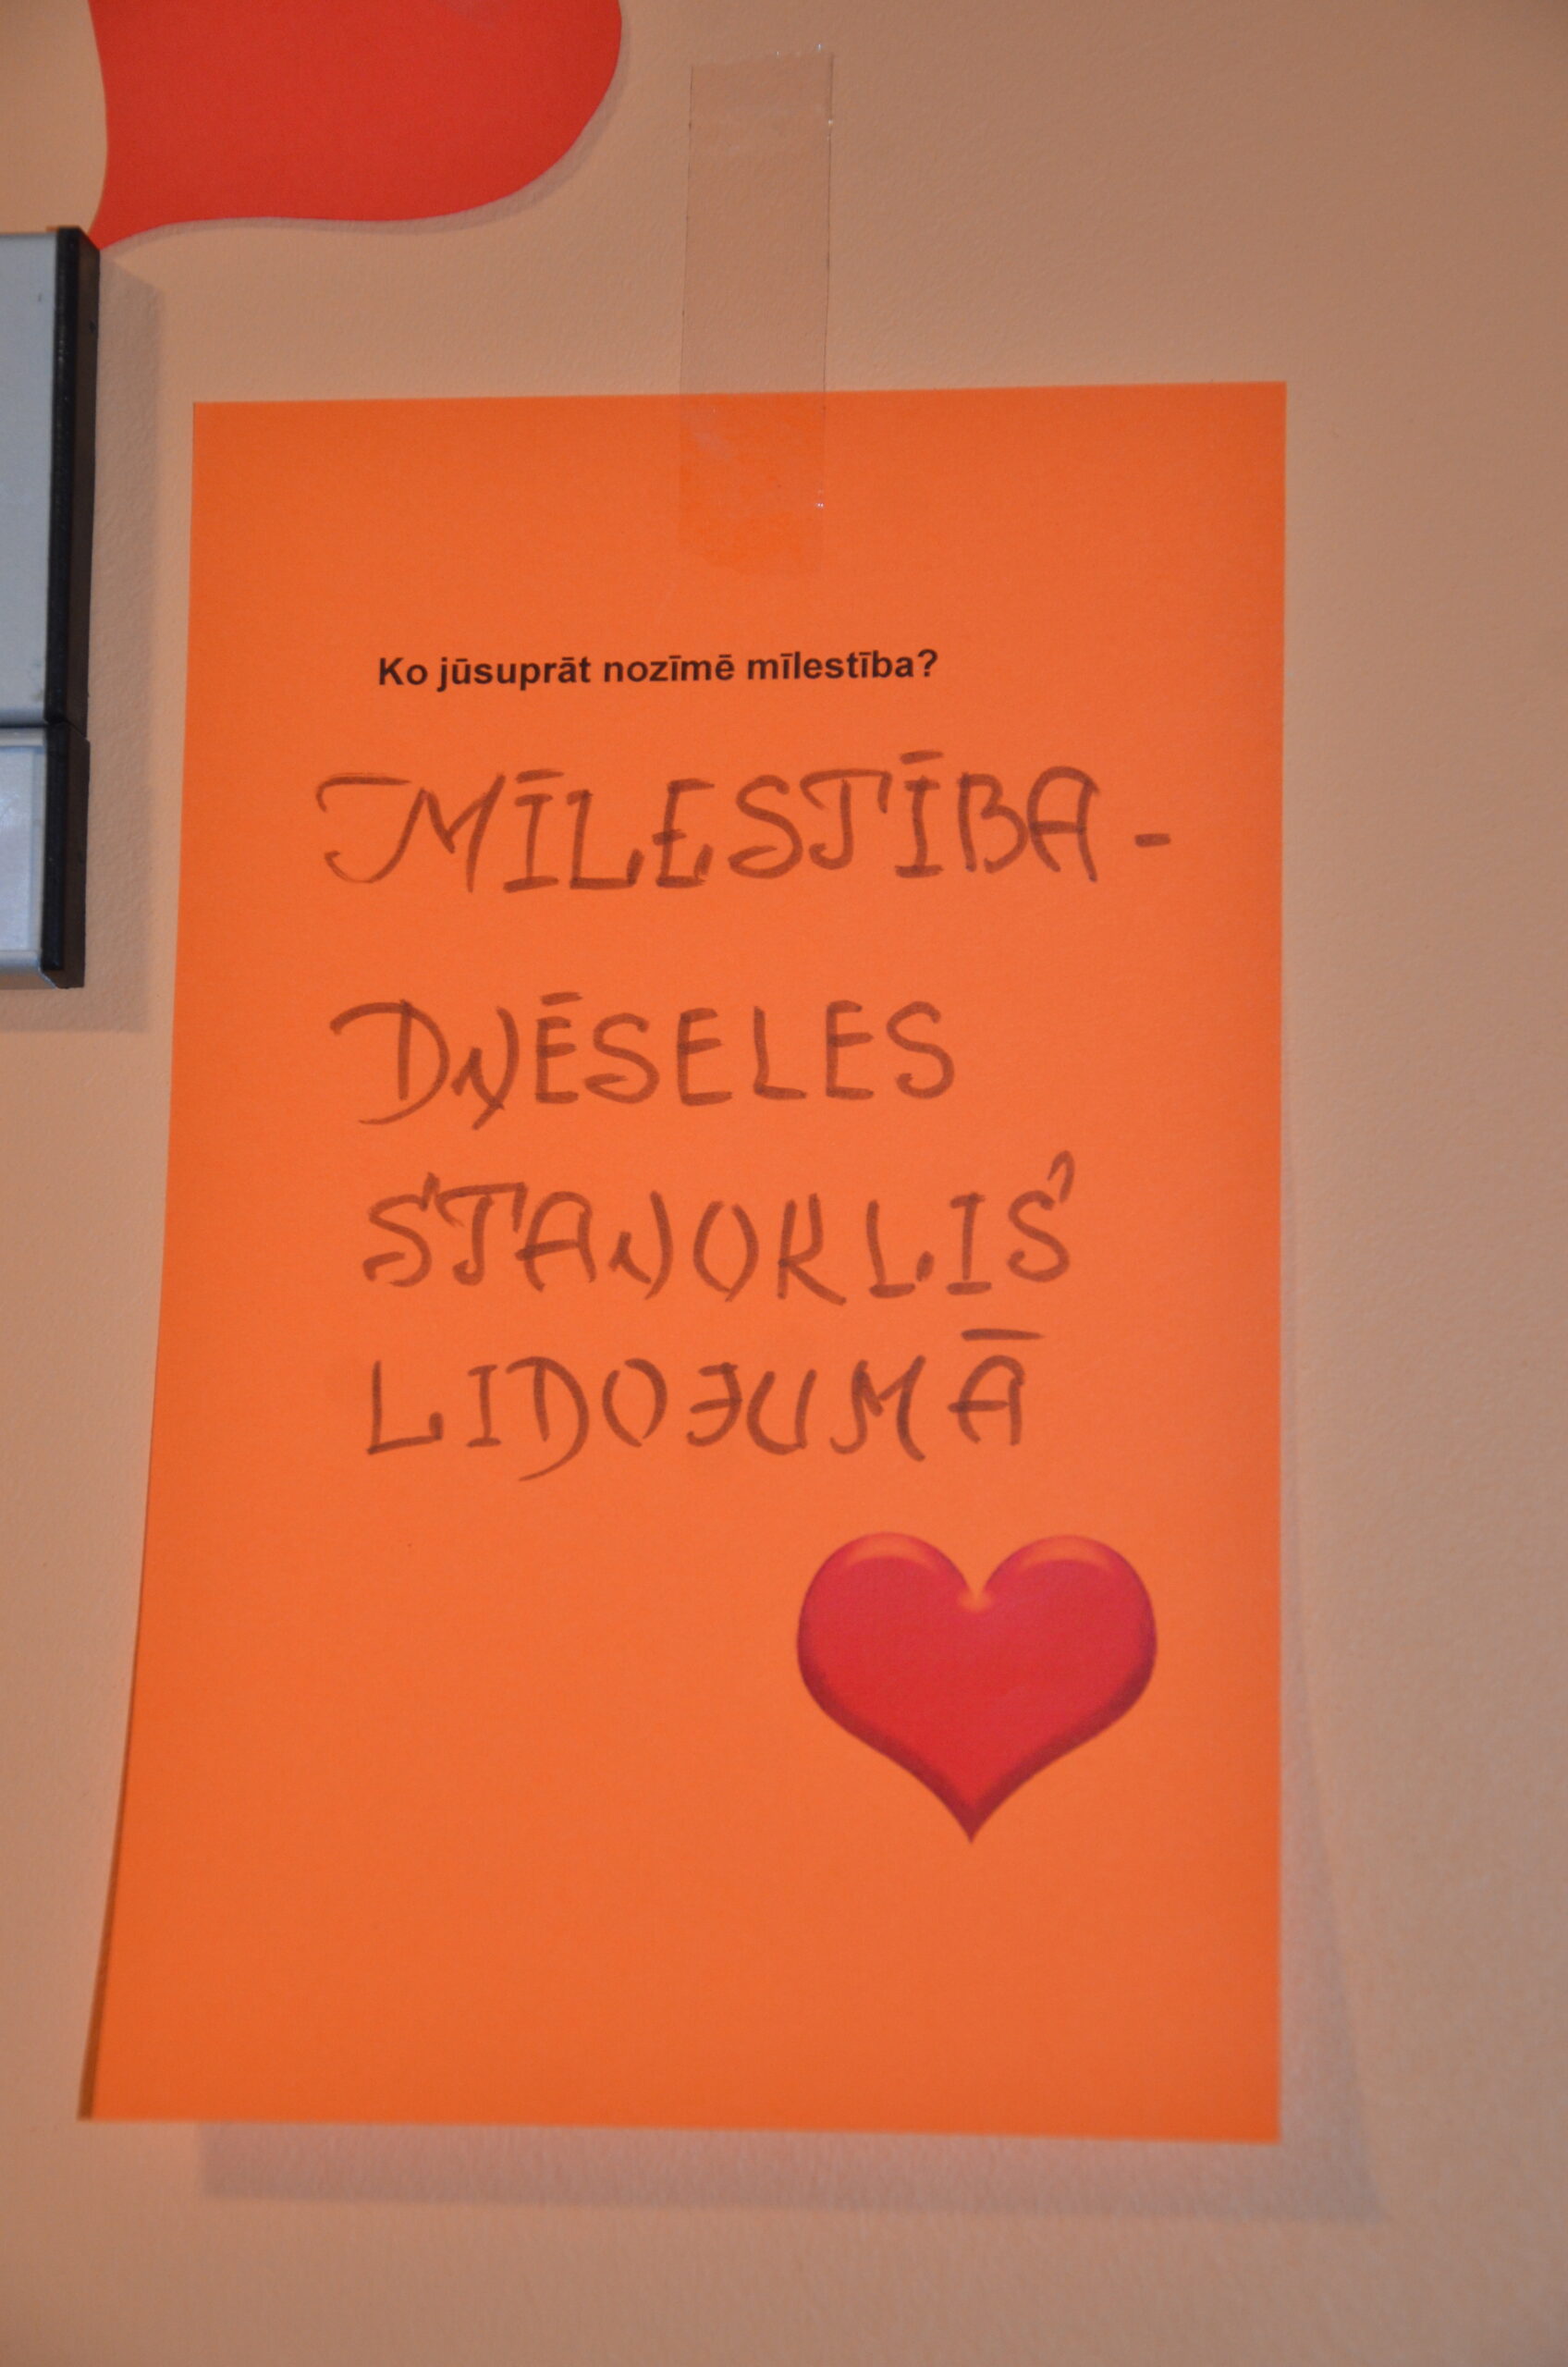 Ko jūsuprāt nozīmē mīlestība?
MĪLESTĪBA -
DVĒSELES
STAVOKLIS
LIDOJUMĀ